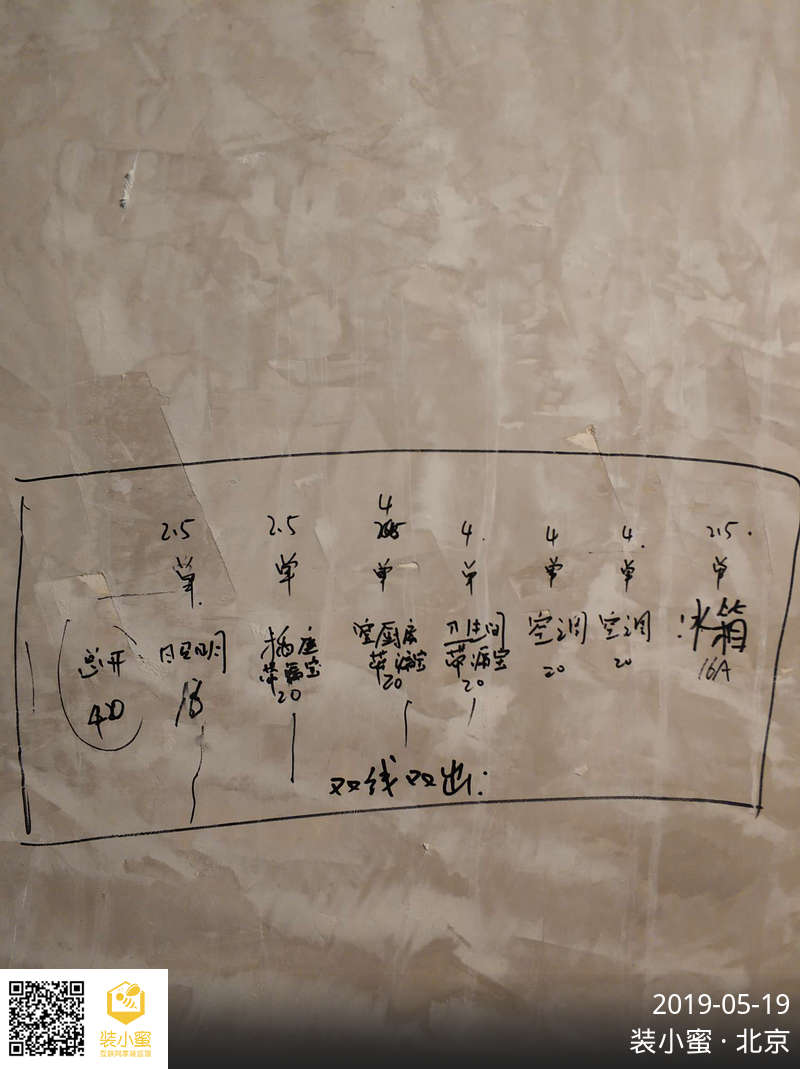 4
2.5 2.5 4 4 4 2.5
单 单 单 单 单 单 单
总开 照明 插座 厨房 卫生间 空调 空调 冰箱
带漏宝 带漏宝 带漏宝
40 16 20 20 20 20 20 16A
双线双出:
装小蜜
互联网家装监理
2019-05-19
装小蜜·北京